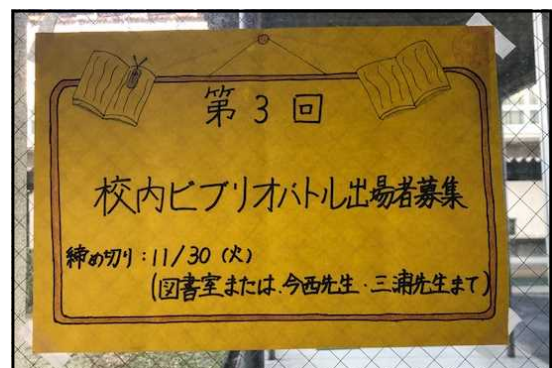 第3回
校内ビブリオバトル出場者募集
締め切り:11/30(火)
(図書室または、今西先生・三浦先生まで)